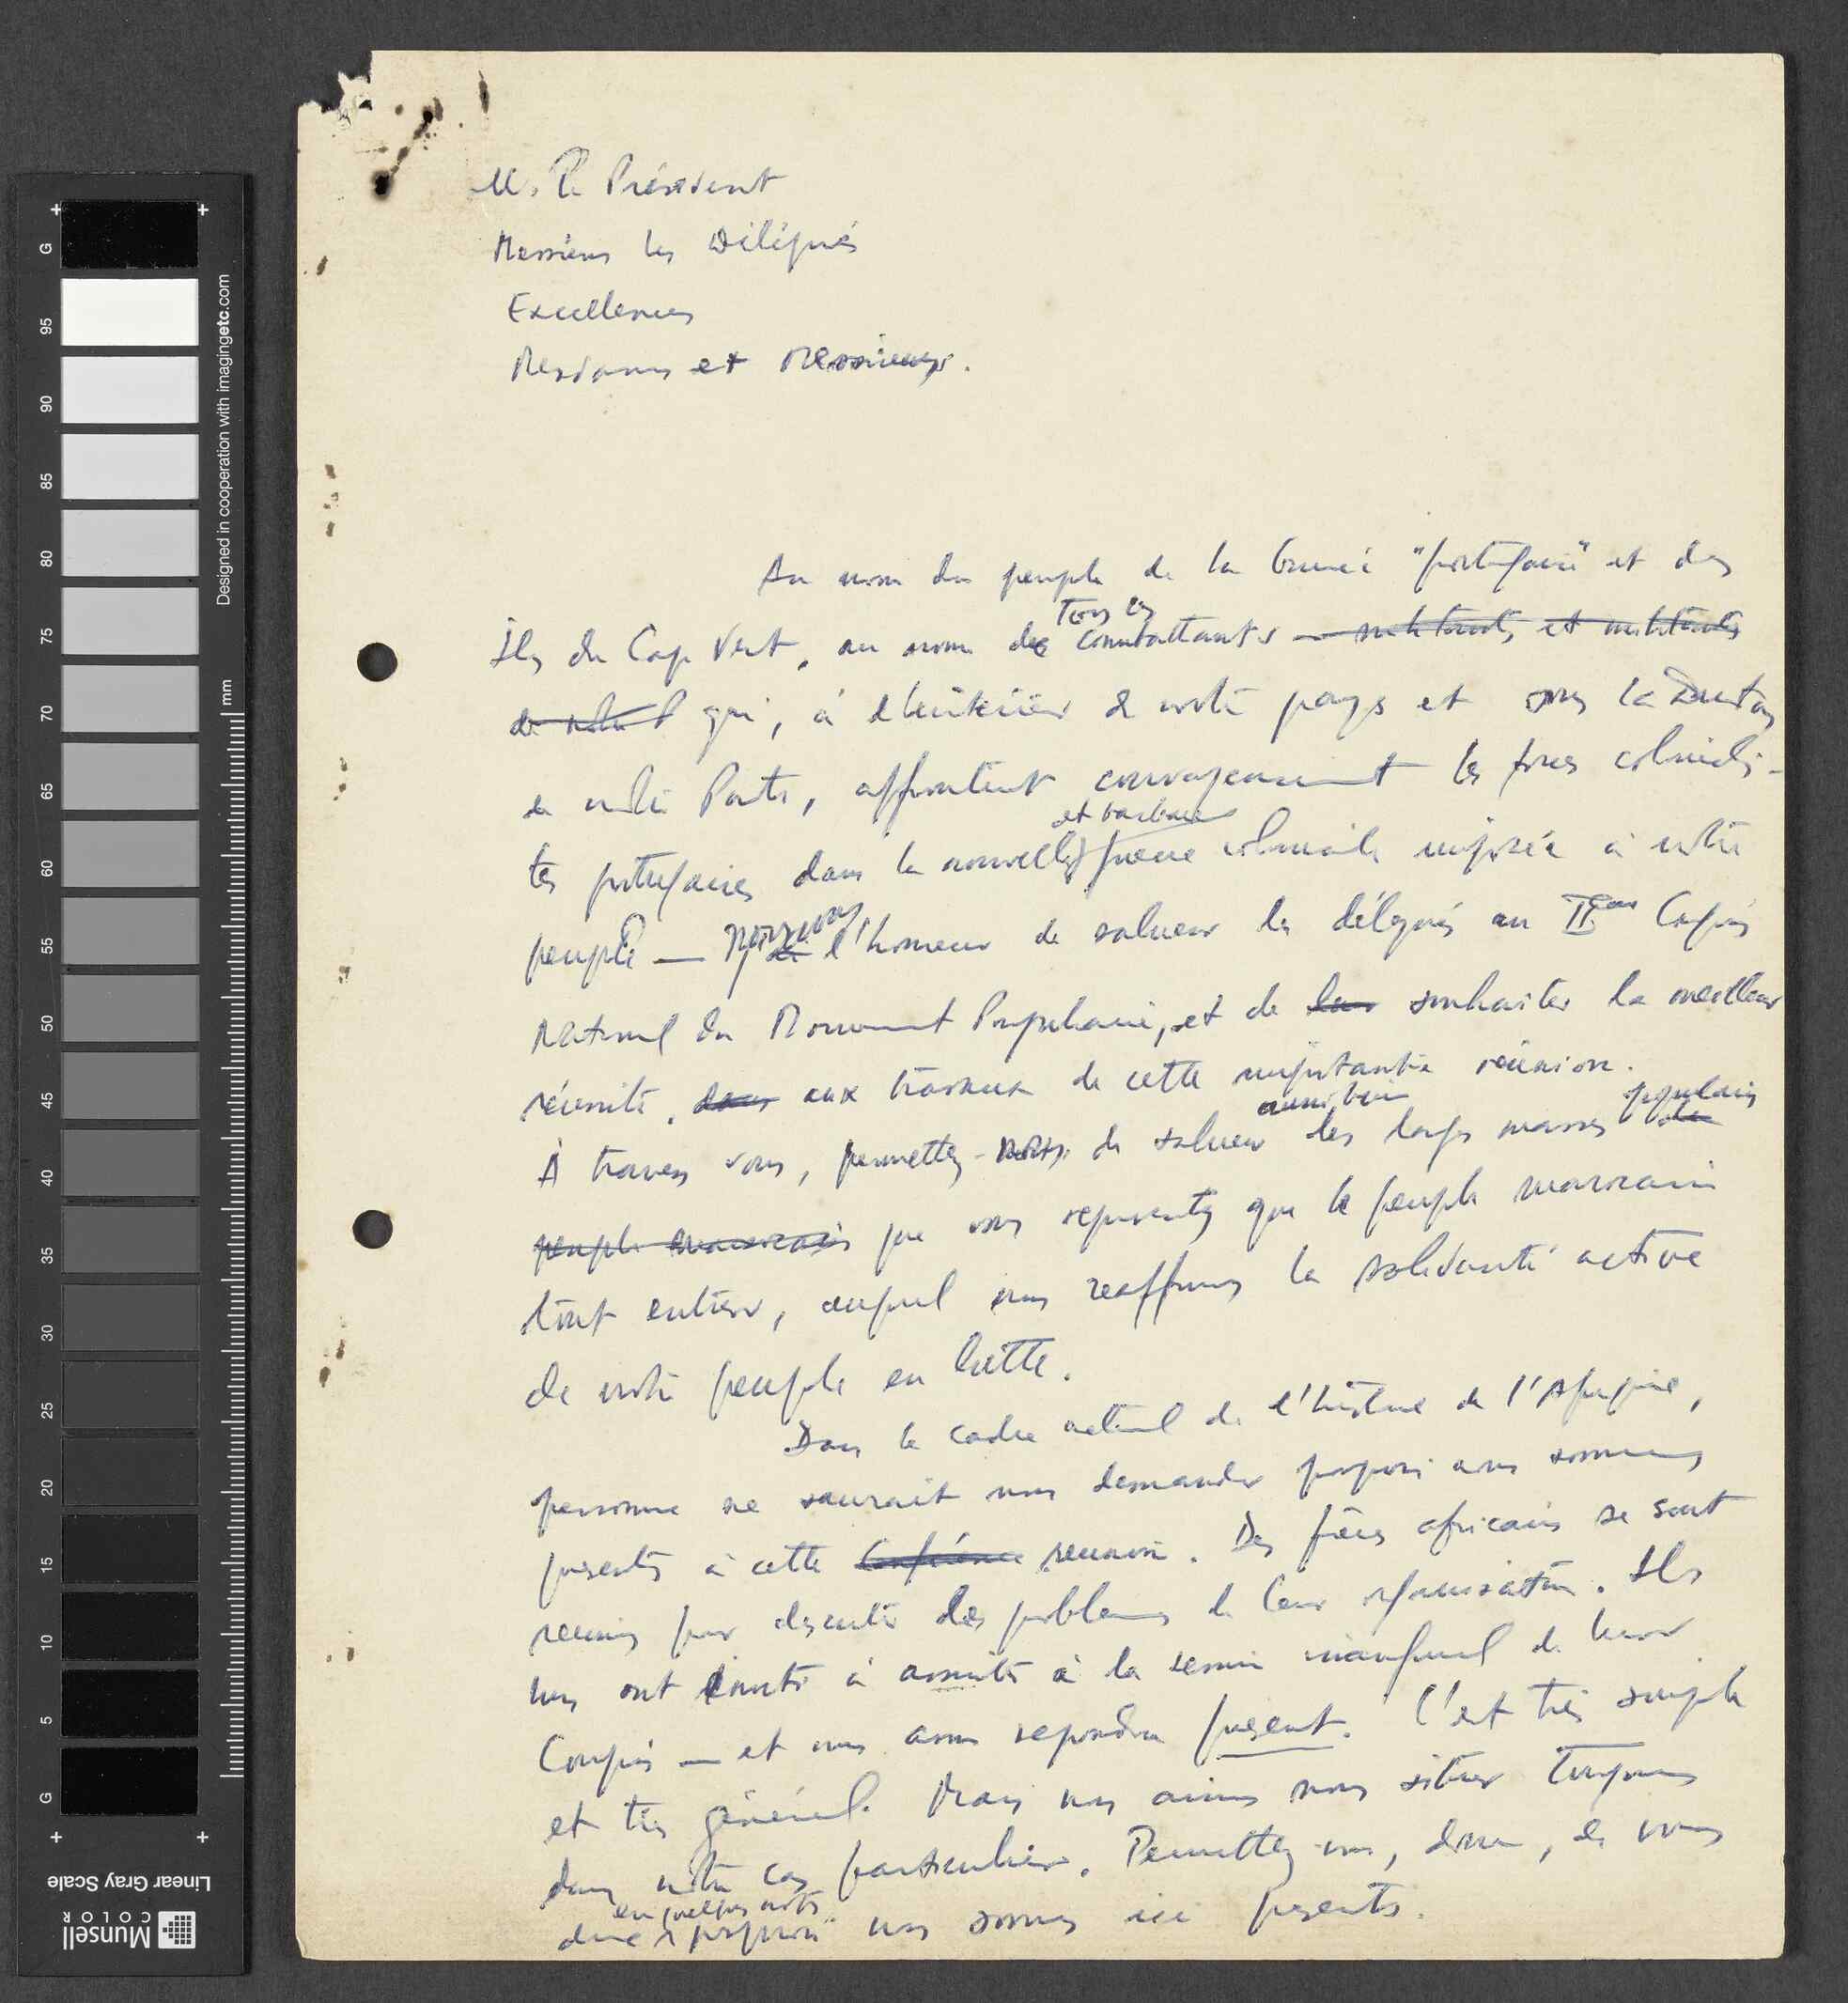 M. le Président
Messieurs les Délégués
Excellences
Mesdames et Messieurs.
Au nom du peuple de la Guinée "portugaise" et des
tous les
Iles du Cap Vert, au nom de combattants — militants et militants
de notre P qui, à l'intérieur de notre pays et sous la direction
de notre Parti, affrontent courageusement les forces colonialis-
et barbare
tes portugaises dans la nouvelle guerre coloniale imposée à notre
peuple — nous avons l'honneur de saluer les délégués au IIème Congrès
National du Mouvement Populaire, et de leur souhaiter la meilleur
réussite, dans aux travaux de cette importante réunion.
aussi bien populaires
À travers vous, permettez-nous de saluer les larges masses du
peuple marocain que vous representez que le peuple marocain
tout entier, auquel nous reaffirmons la solidarité active
de notre peuple en lutte.
Dans le cadre actuel de l'histoire de l'Afrique,
personne ne saurait nous demander pourquoi nous sommes
presents à cette Conférence reunion. Des frères africains se sont
reunis pour discuter des problemes de leur organisation. Ils
nous ont invité à assister à la session inaugural de leur
Congrès — et nous avons repondu present. C'est très simple
et très général. Mais nous aimons nous situer toujours
dans notre cas particulier. Permettez-nous, donc, de vous
en quelques mots
dire pourquoi nous sommes ici presents.
G 95 90 85 80 75 70 65 60 55 50 45 40 35 30 25 20 15 10 5 G
mm
Designed in cooperation with imagingetc.com
Linear Gray Scale
Munsell
COLOR